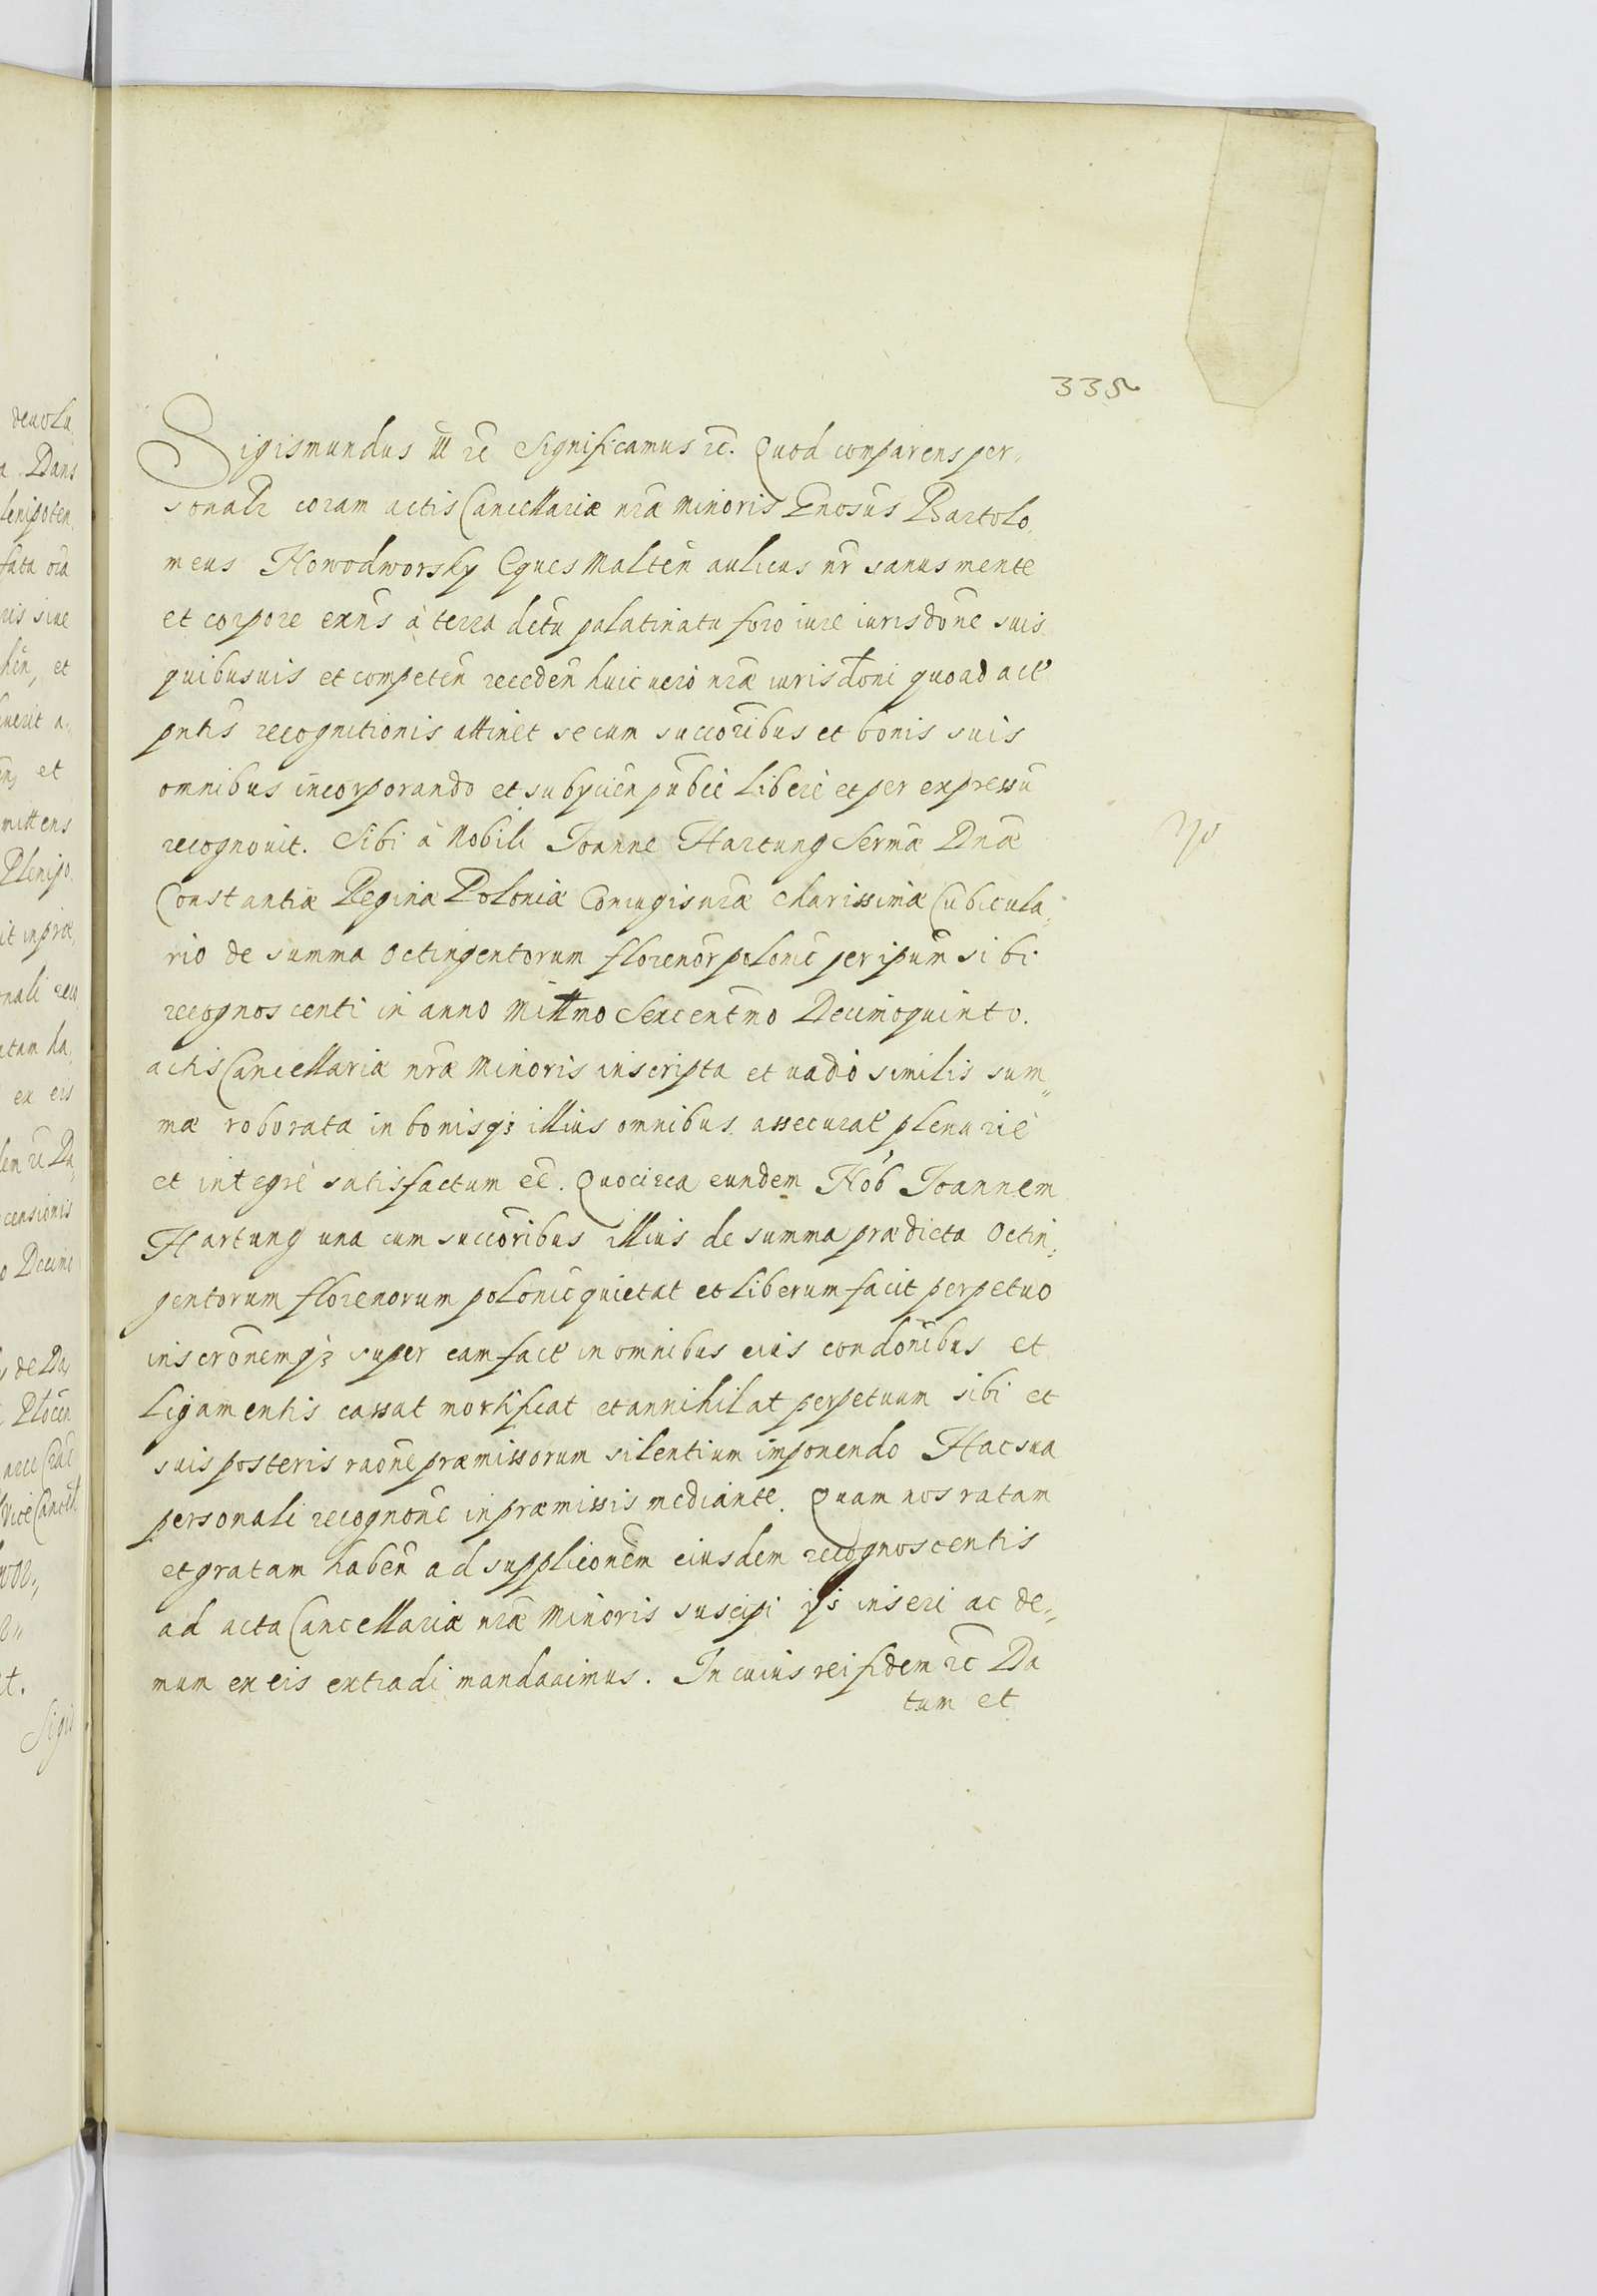 335
Sigismundus III rc Significamus rc. Quod comparens per,
sonalr coram actis Cancellariæ nrã Minoris Gnosus Bartolo,
meus Nowodworsky Eques Malten̄ aulicus nr̄ sanus mente
et corpore exñs à terra dctu palatinatu foro iure iurisdōne suis
quibusuis et competen̄ receden̄ huic uero nræ iurisdōni quoad act
pntis recognitionis attinet se cum succōribus et bonis suis
omnibus incorporando et subycien̄ publcè liberè et per expressū
recognouit. Sibi à Nobili Joanne Hartung Sermæ Dnæ
Constantiæ Reginæ Poloniæ Coniugis nræ charissimæ Cubicula,
rio de summa Octingentorum florenor polonic per ipsum sibi
recognoscenti in anno Millmo Sexcentmo Decimoquinto.
actis Cancellariæ nræ Minoris inscripta et uadio similis sum,,
mæ roborata in bonisq3 illius omnibus assecurat plenarie
et integrè satisfactum eē. Quocirca eundem Nob Joannem
Hartung una cum succōribus illius de summa prædicta Octin,
gentorum florenorum polonic quietat et liberum facit perpetuo
inscrōnemq3 super eam fact in omnibus eius condōnibus et
Ligamentis cassat mortificat et annihilat perpetuum sibi et
suis posteris raōne præmissorum silentium imponendo Hac sua
personali recognōne in præmissis mediante. Quam nos ratam
et gratam haben̄ ad supplicōnem eiusdem recognoscentis
ad acta Cancellariæ nræ Minoris suscipi ijs inseri ac de,,
mum ex eis extradi mandauimus. In cuius rei fidem rc Da
tum et